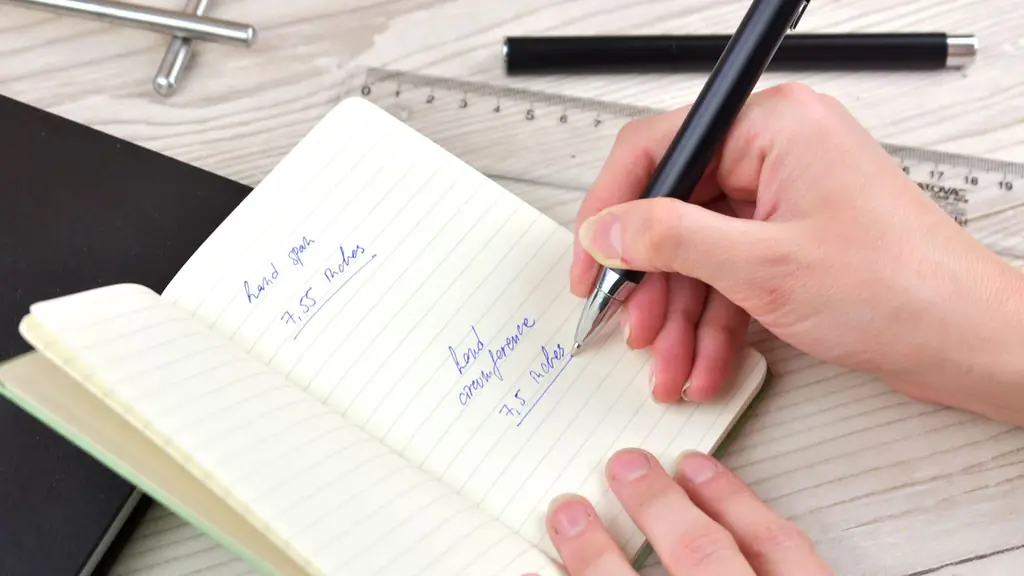 hand span
7,55 inches
hand
circumference
7,5 inches
0 1 2 3 4 5 6 7
17 18 19